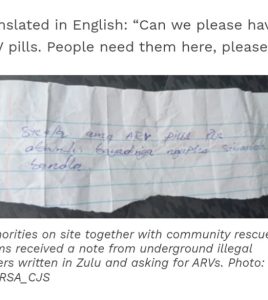 nslated in English: “Can we please hav
V pills. People need them here, please
ama ARV pills Pls
abantu bayadinga
sandla
orities on site together with community rescue
ms received a note from underground illegal
ers written in Zulu and asking for ARVs. Photo:
RSA_CJS